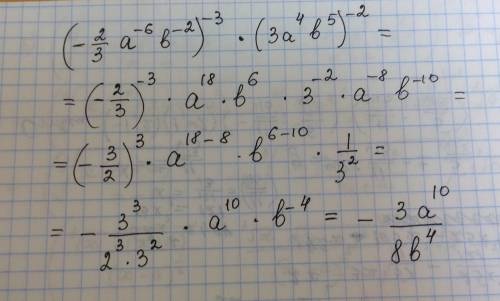 (-2/3 a^-6 b^-2)^-3 · (3a^4 b^5)^-2 =
= (-2/3)^-3 · a^18 · b^6 · 3^-2 · a^-8 b^-10 =
= (-3/2)^3 · a^18-8 · b^6-10 · 1/3^2 =
= - 3^3/2^3·3^2 · a^10 · b^-4 = - 3a^10/8b^4